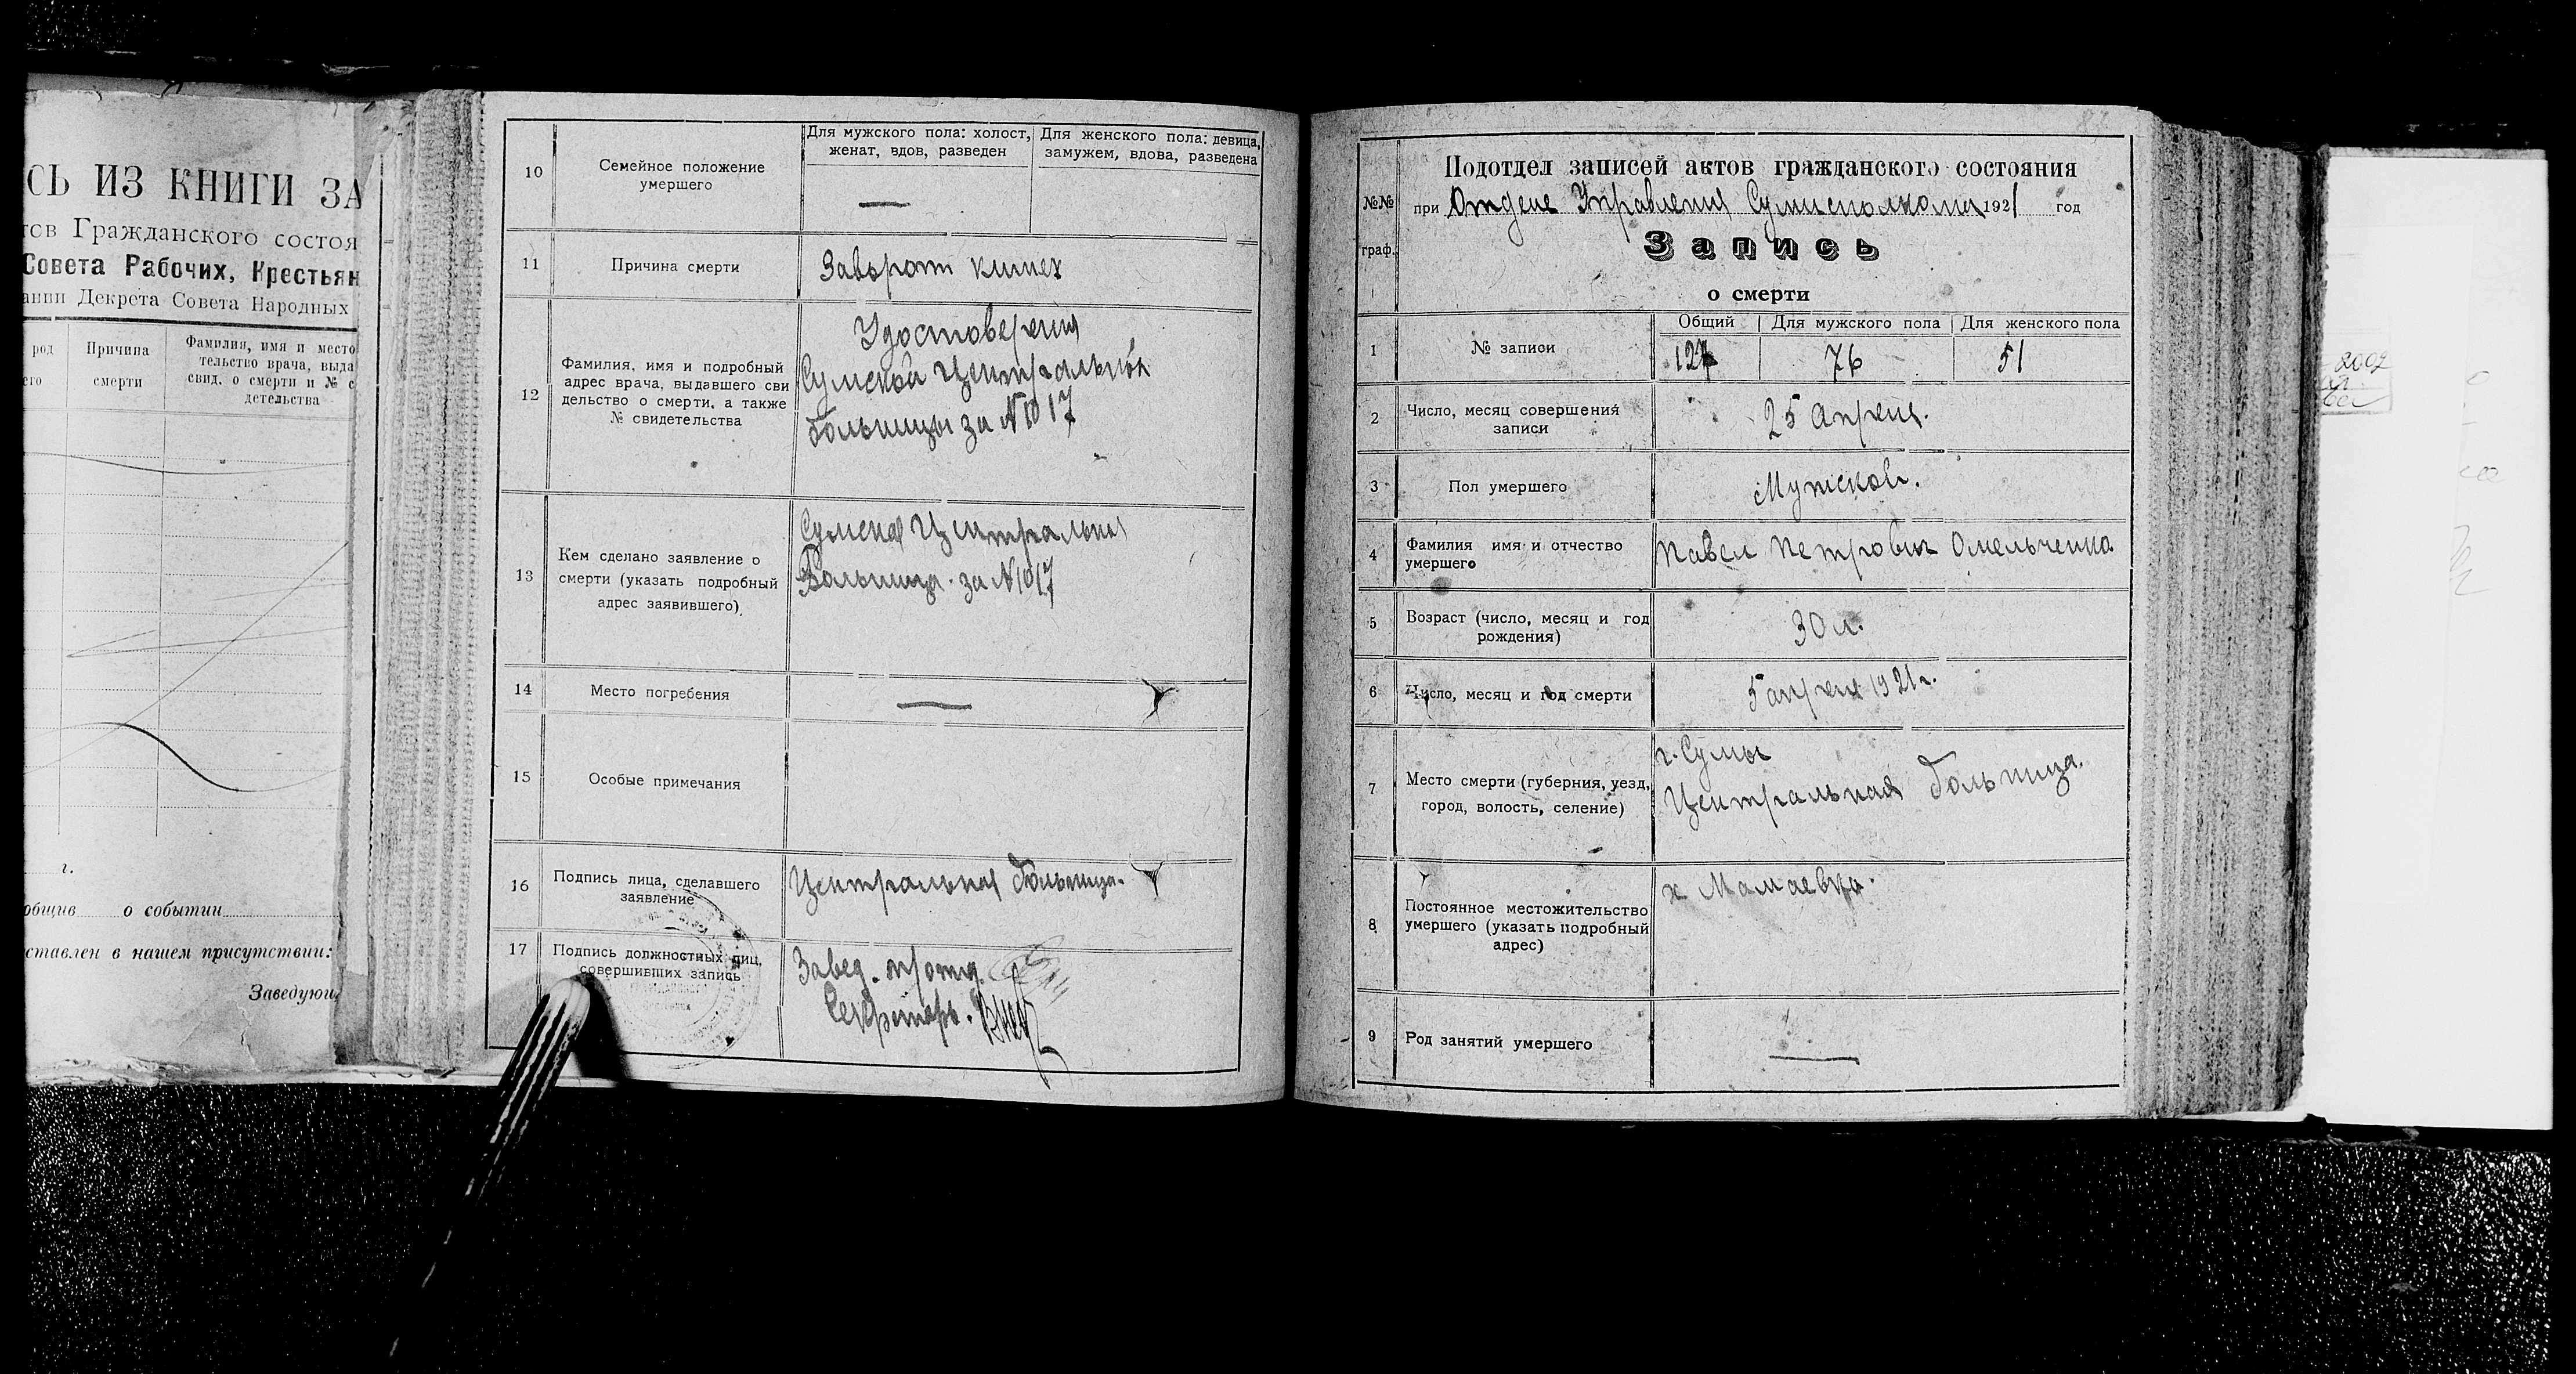 СЬ ИЗ КНИГИ ЗА
тов Гражданского состоя
Совета Рабочих, Крестьян
ании Декрета Совета Народных
род
его
Причина
смерти
Фамилия, имя и место
тельство врача, выда
свид. о смерти и № с
детельства
г.
общив о событии
ставлен в нашем присутствии:
Заведующ
10
Семейное положение
умершего
Для мужского пола: холост,
женат, вдов, разведен
Для женского пола: девица,
замужем, вдова, разведена
—
11
Причина смерти
Заворот кишек
12
Фамилия, имя и подробный
адрес врача, выдавшего сви
дельство о смерти, а также
№ свидетельства
Удостоверения
Сумской Центральной
больницы за №1017
13
Кем сделано заявление о
смерти (указать подробный
адрес заявившего)
Сумская Центральная
Больница за №1017
14
Место погребения
—
15
Особые примечания
16
Подпись лица, сделавшего
заявление
Центральная больница.
17
Подпись должностных лиц,
совершивших запись
Завед.
Секретарь.
Подотдел записей актов гражданского состояния
№№
граф.
при Отделе Управления Сумисполкома 1921 год
Запись
о смерти
1
№ записи
Общий
Для мужского пола
Для женского пола
127
76
51
2
Число, месяц совершения
записи
25 апреля.
3
Пол умершего
Мужской.
4
Фамилия имя и отчество
умершего
Павел Петрович Омельченко
5
Возраст (число, месяц и год
рождения)
30 л.
6
Число, месяц и год смерти
5 апреля 1921 г.
7
Место смерти (губерния, уезд,
город, волость, селение)
г. Сумы
Центральная больница.
8
Постоянное местожительство
умершего (указать подробный
адрес)
х Мамаевка.
9
Род занятий умершего
—
2002